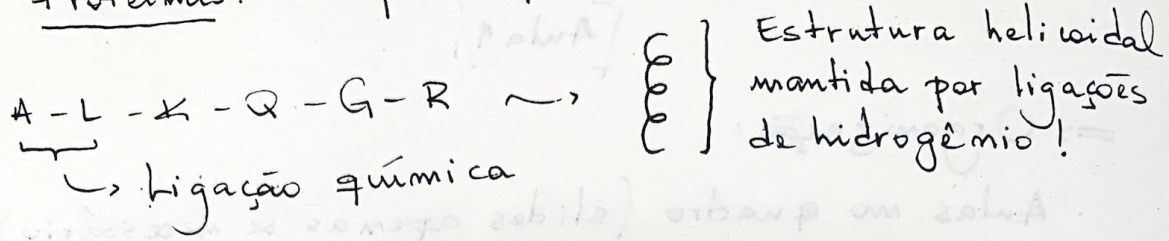 A - L - K - Q - G - R ~> Estrutura helicoidal
mantida por ligações
de hidrogênio !
↳ Ligação química